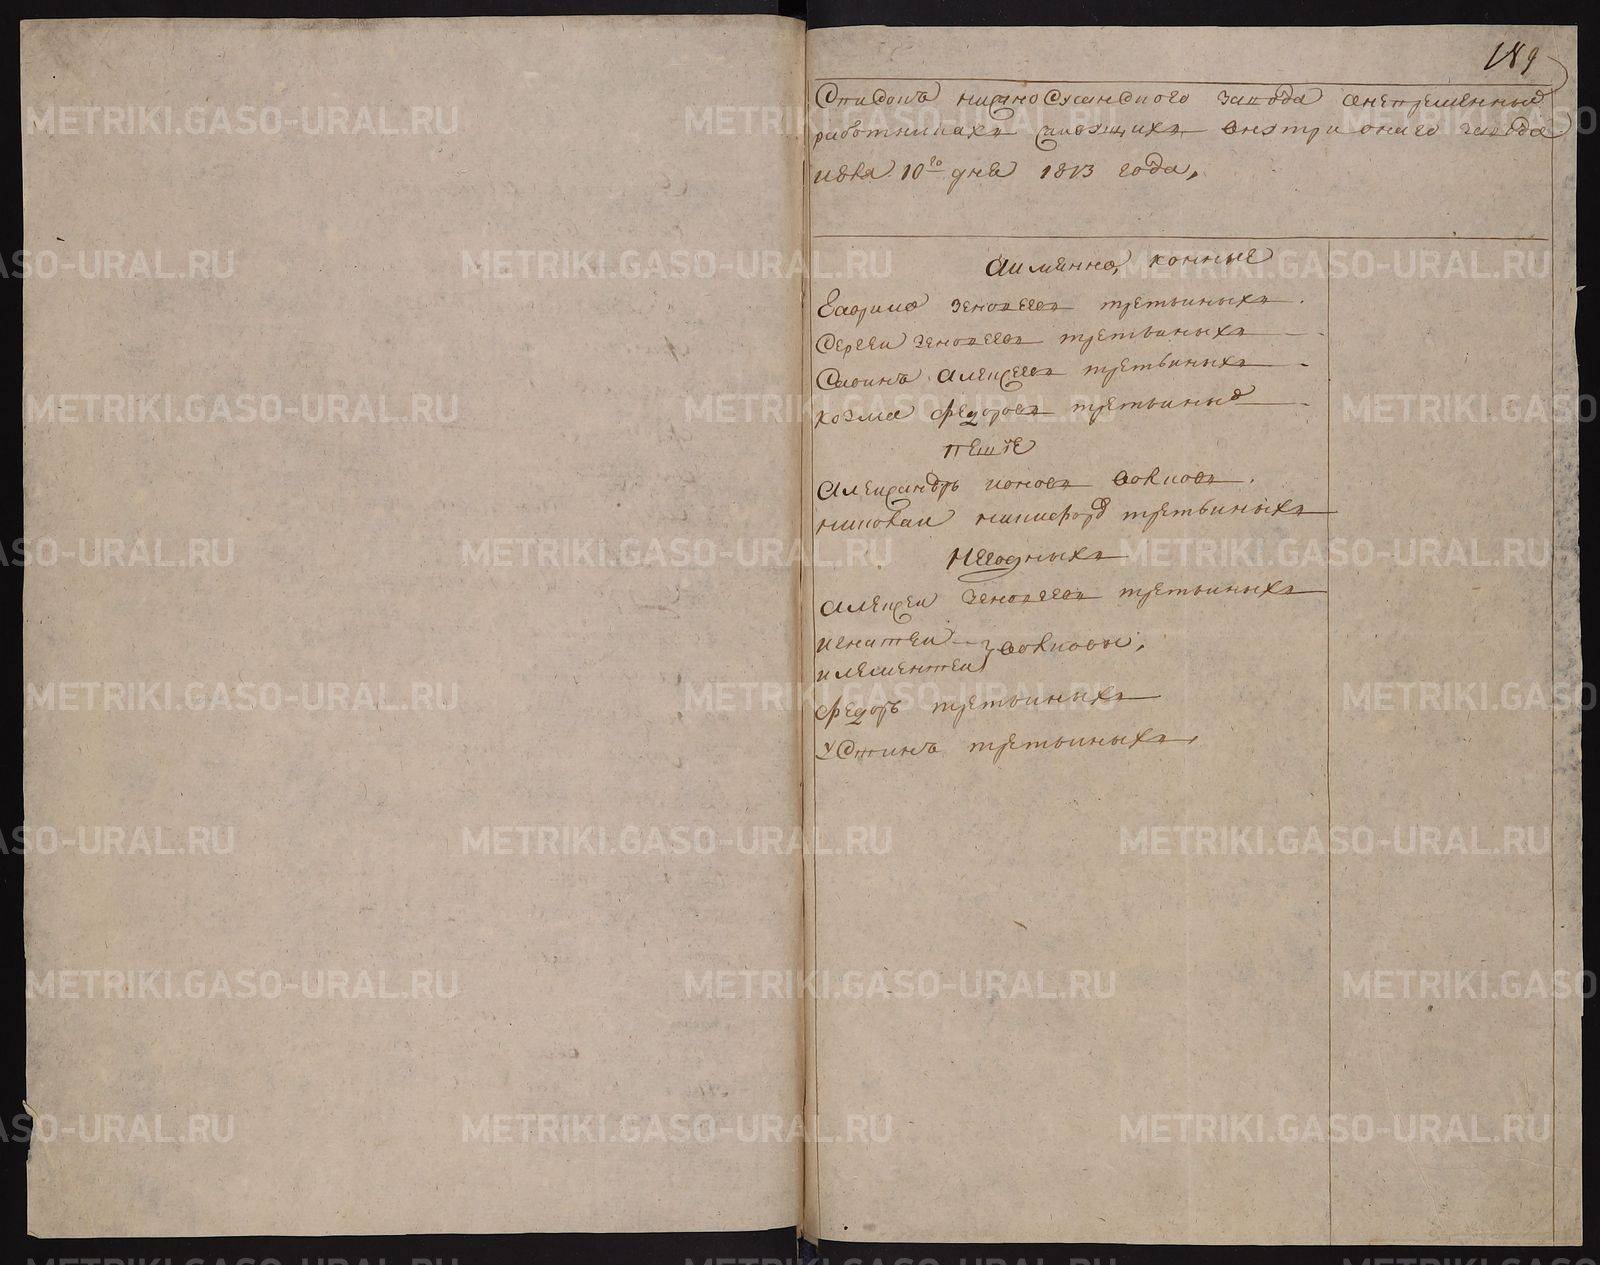 189
Списокъ нижно Сусанского завода онепременныхъ
работникахъ живущихъ внутри онаго завода
июля 10го дня 1813 года,
Аимянно, конные
Гаврило Зеновеевъ третьиныхъ.
Сергеи Зеновеевъ третьиныхъ
Савинъ Алексеевъ третьиныхъ
козма Федоровъ третьиныхъ
пешие
Александръ ионовъ волковъ.
николаи никифоръ третьиныхъ
Негодныхъ
Алексеи Зеновеевъ третьиныхъ
игнатеи волковы.
иклементеи
Федоръ третьиныхъ
Устинъ третьиныхъ,
METRIKI.GASO-URAL.RU